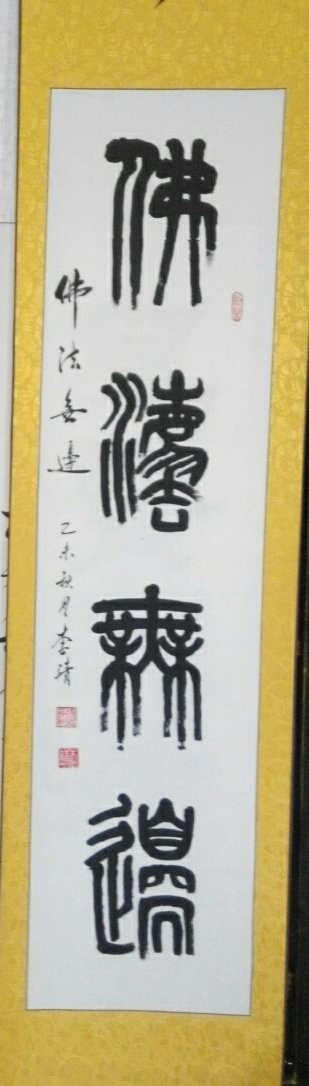 佛灋無邊
佛法無邊
乙未秋月李清